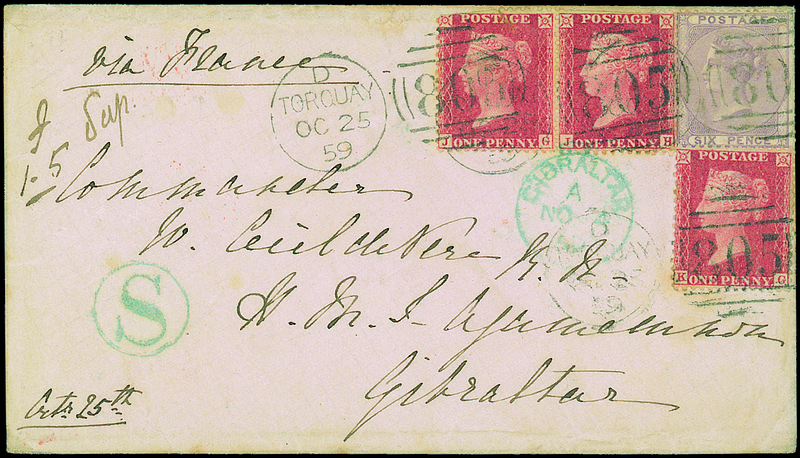 via France
POSTAGE
J ONE PENNY G
POSTAGE
J ONE PENNY H
POSTAGE
SIX PENCE
805
805
80
D
TORQUAY
OC 25
59
1.5
Commander
W. Cecil de Vere R. N
H. M. S. Agamemnon
Gibraltar
GIBRALTAR
A
NO
POSTAGE
K ONE PENNY G
805
S
Octr 25th